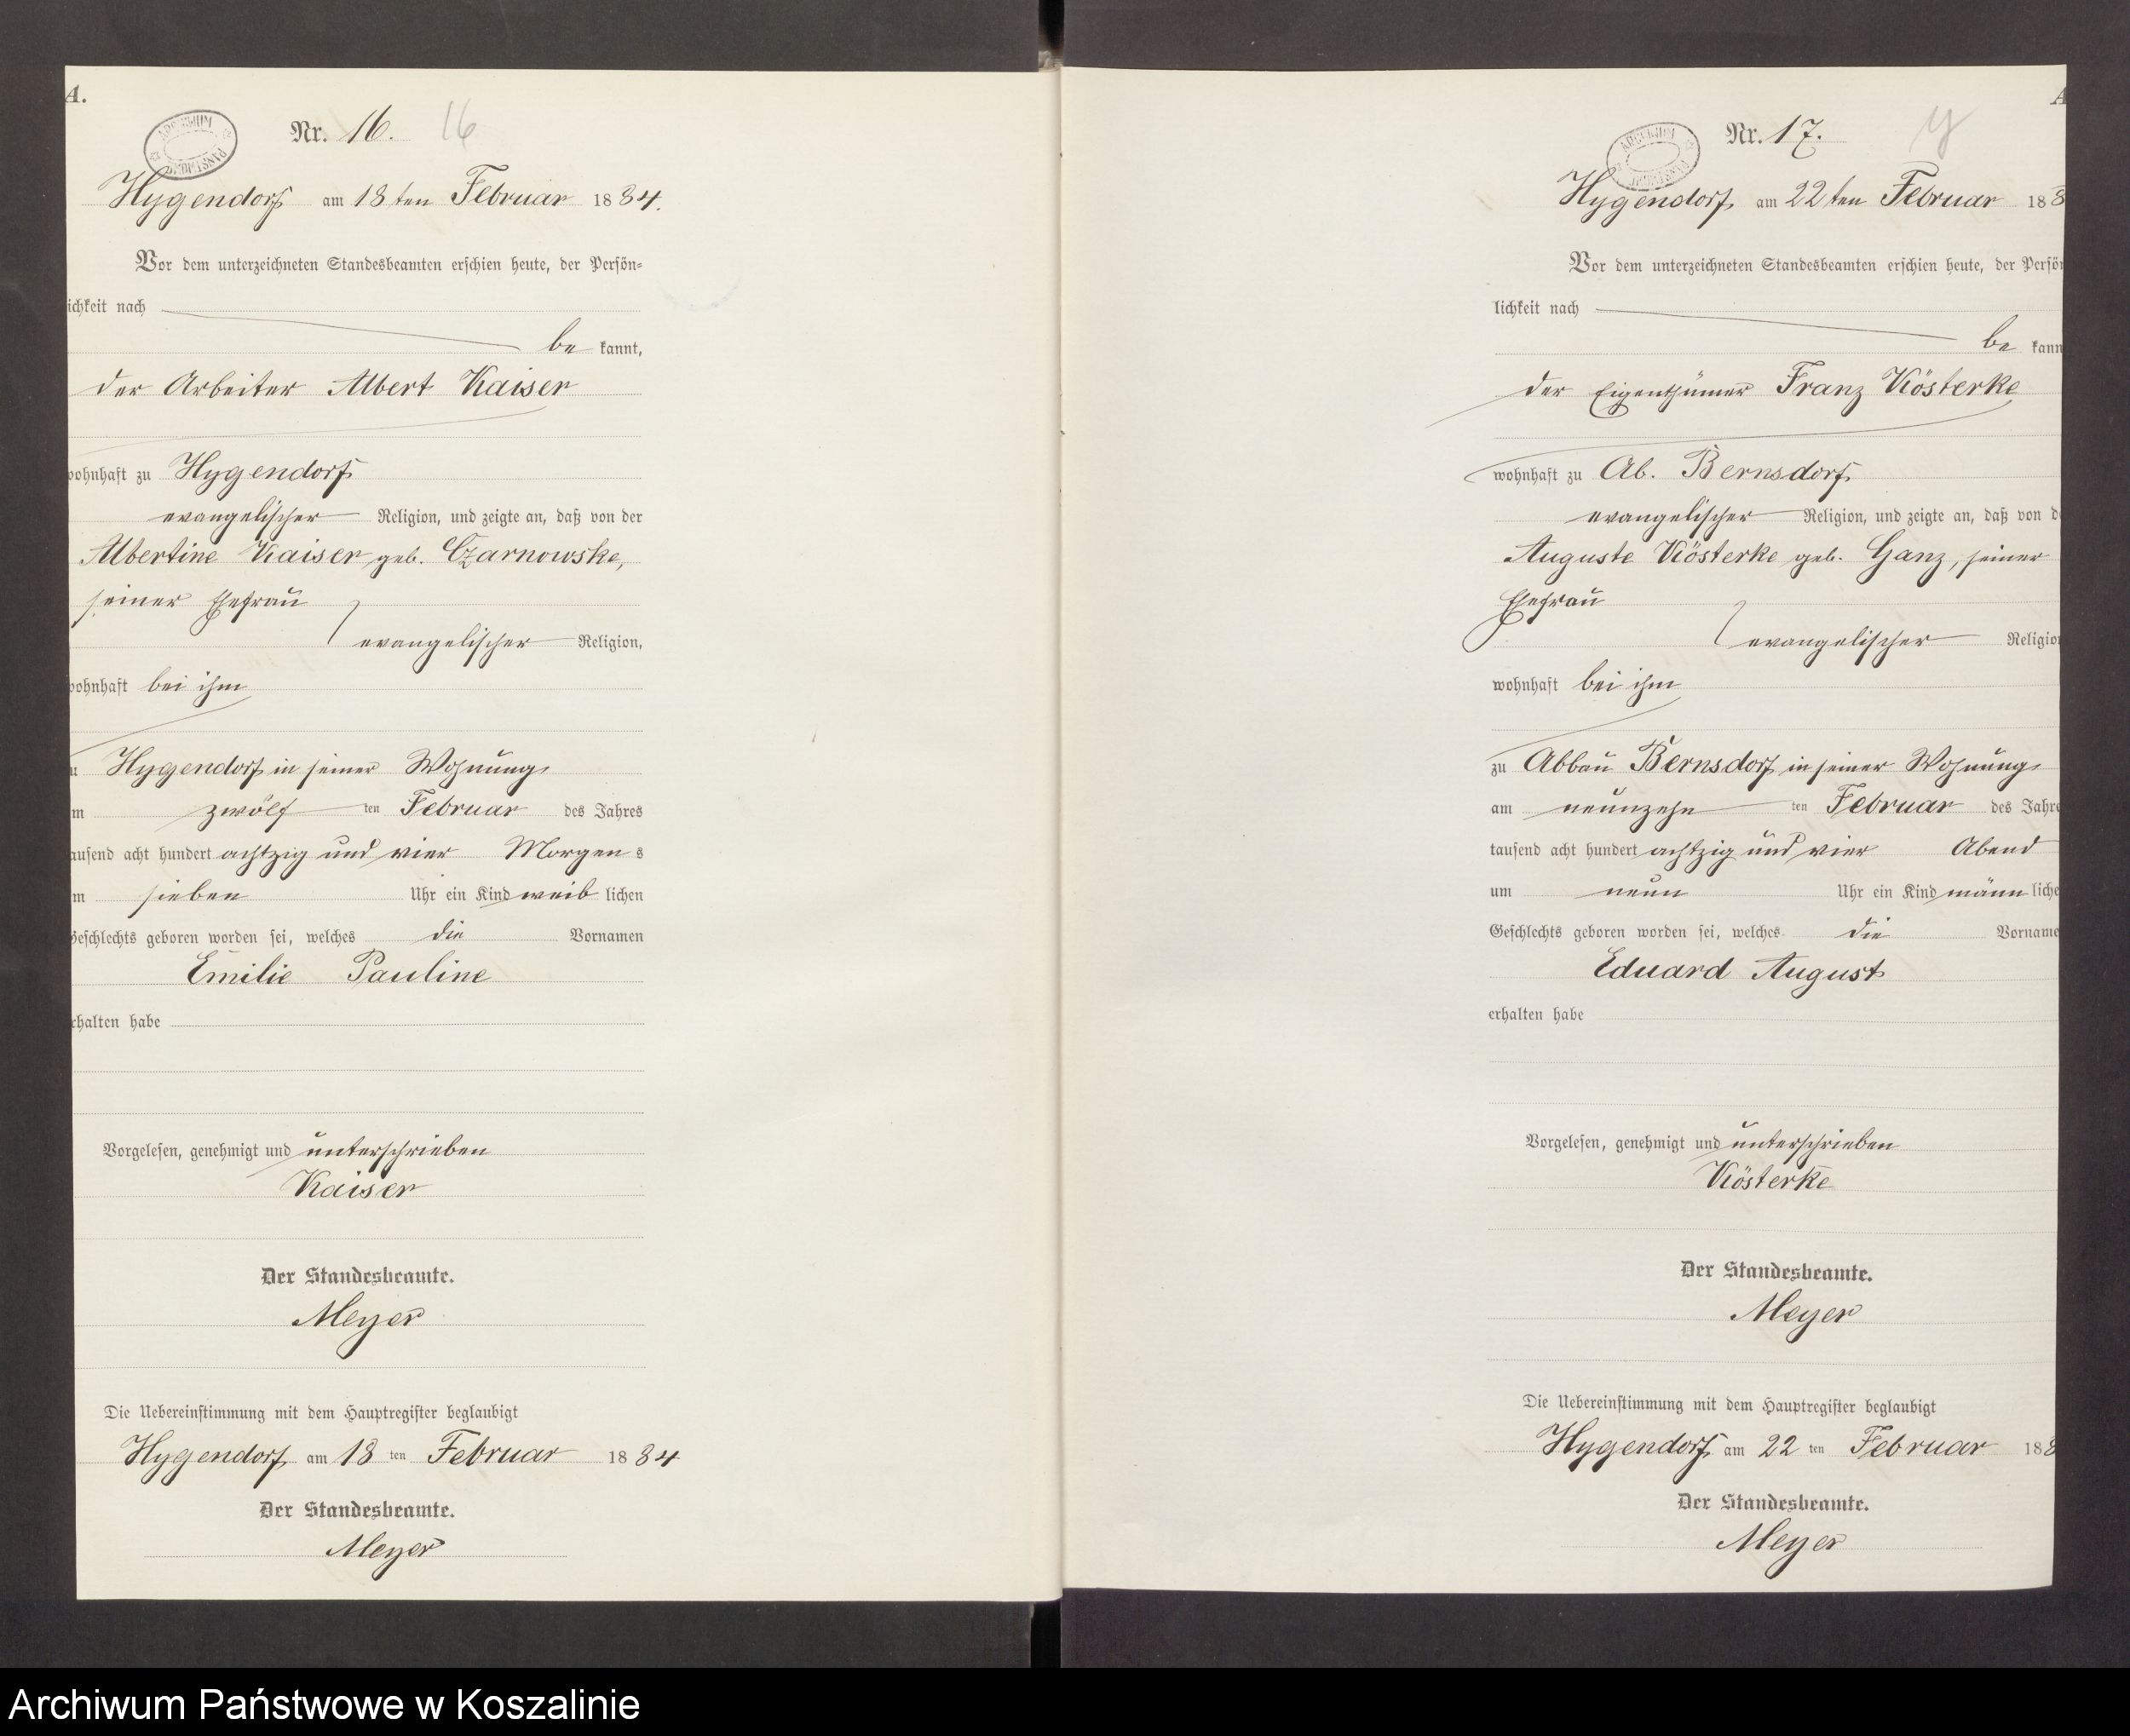 A.
ARCHIWUM PAŃSTWOWE
Nr. 16. 16
Hygendorf am 18 ten Februar 1884.
Vor dem unterzeichneten Standesbeamten erschien heute, der Persön=
ichkeit nach
be kannt,
der Arbeiter Albert Kaiser
wohnhaft zu Hygendorf
evangelischer Religion, und zeigte an, daß von der
Albertine Kaiser geb. Czarnowske,
seiner Ehefrau
evangelischer Religion,
wohnhaft bei ihm
u Hygendorf in seiner Wohnung
m zwölf ten Februar des Jahres
ausend acht hundert achtzig und vier Morgens
m sieben Uhr ein Kind weib lichen
Geschlechts geboren worden sei, welches die Vornamen
Emilie Pauline
rhalten habe
Vorgelesen, genehmigt und unterschrieben
Kaiser
Der Standesbeamte.
Meyer
Die Uebereinstimmung mit dem Hauptregister beglaubigt
Hygendorf am 18 ten Februar 1884
Der Standesbeamte.
Meyer
A
ARCHIWUM PAŃSTWOWE
Nr. 17.
Hygendorf am 22 ten Februar 188
Vor dem unterzeichneten Standesbeamten erschien heute, der Persö
lichkeit nach
be kann
der Eigenthümer Franz Kösterke
wohnhaft zu Ab. Bernsdorf
evangelischer Religion, und zeigte an, daß von d
Auguste Kösterke geb. Ganz, seiner
Ehefrau
evangelischer Religio
wohnhaft bei ihm
zu Abbau Bernsdorf in seiner Wohnung
am neunzehn ten Februar des Jahre
tausend acht hundert achtzig und vier Abend
um neun Uhr ein Kind männ liche
Geschlechts geboren worden sei, welches die Vorname
Eduard August
erhalten habe
Vorgelesen, genehmigt und unterschrieben
Kösterke
Der Standesbeamte.
Meyer
Die Uebereinstimmung mit dem Hauptregister beglaubigt
Hygendorf am 22 ten Februar 188
Der Standesbeamte.
Meyer
Archiwum Państwowe w Koszalinie